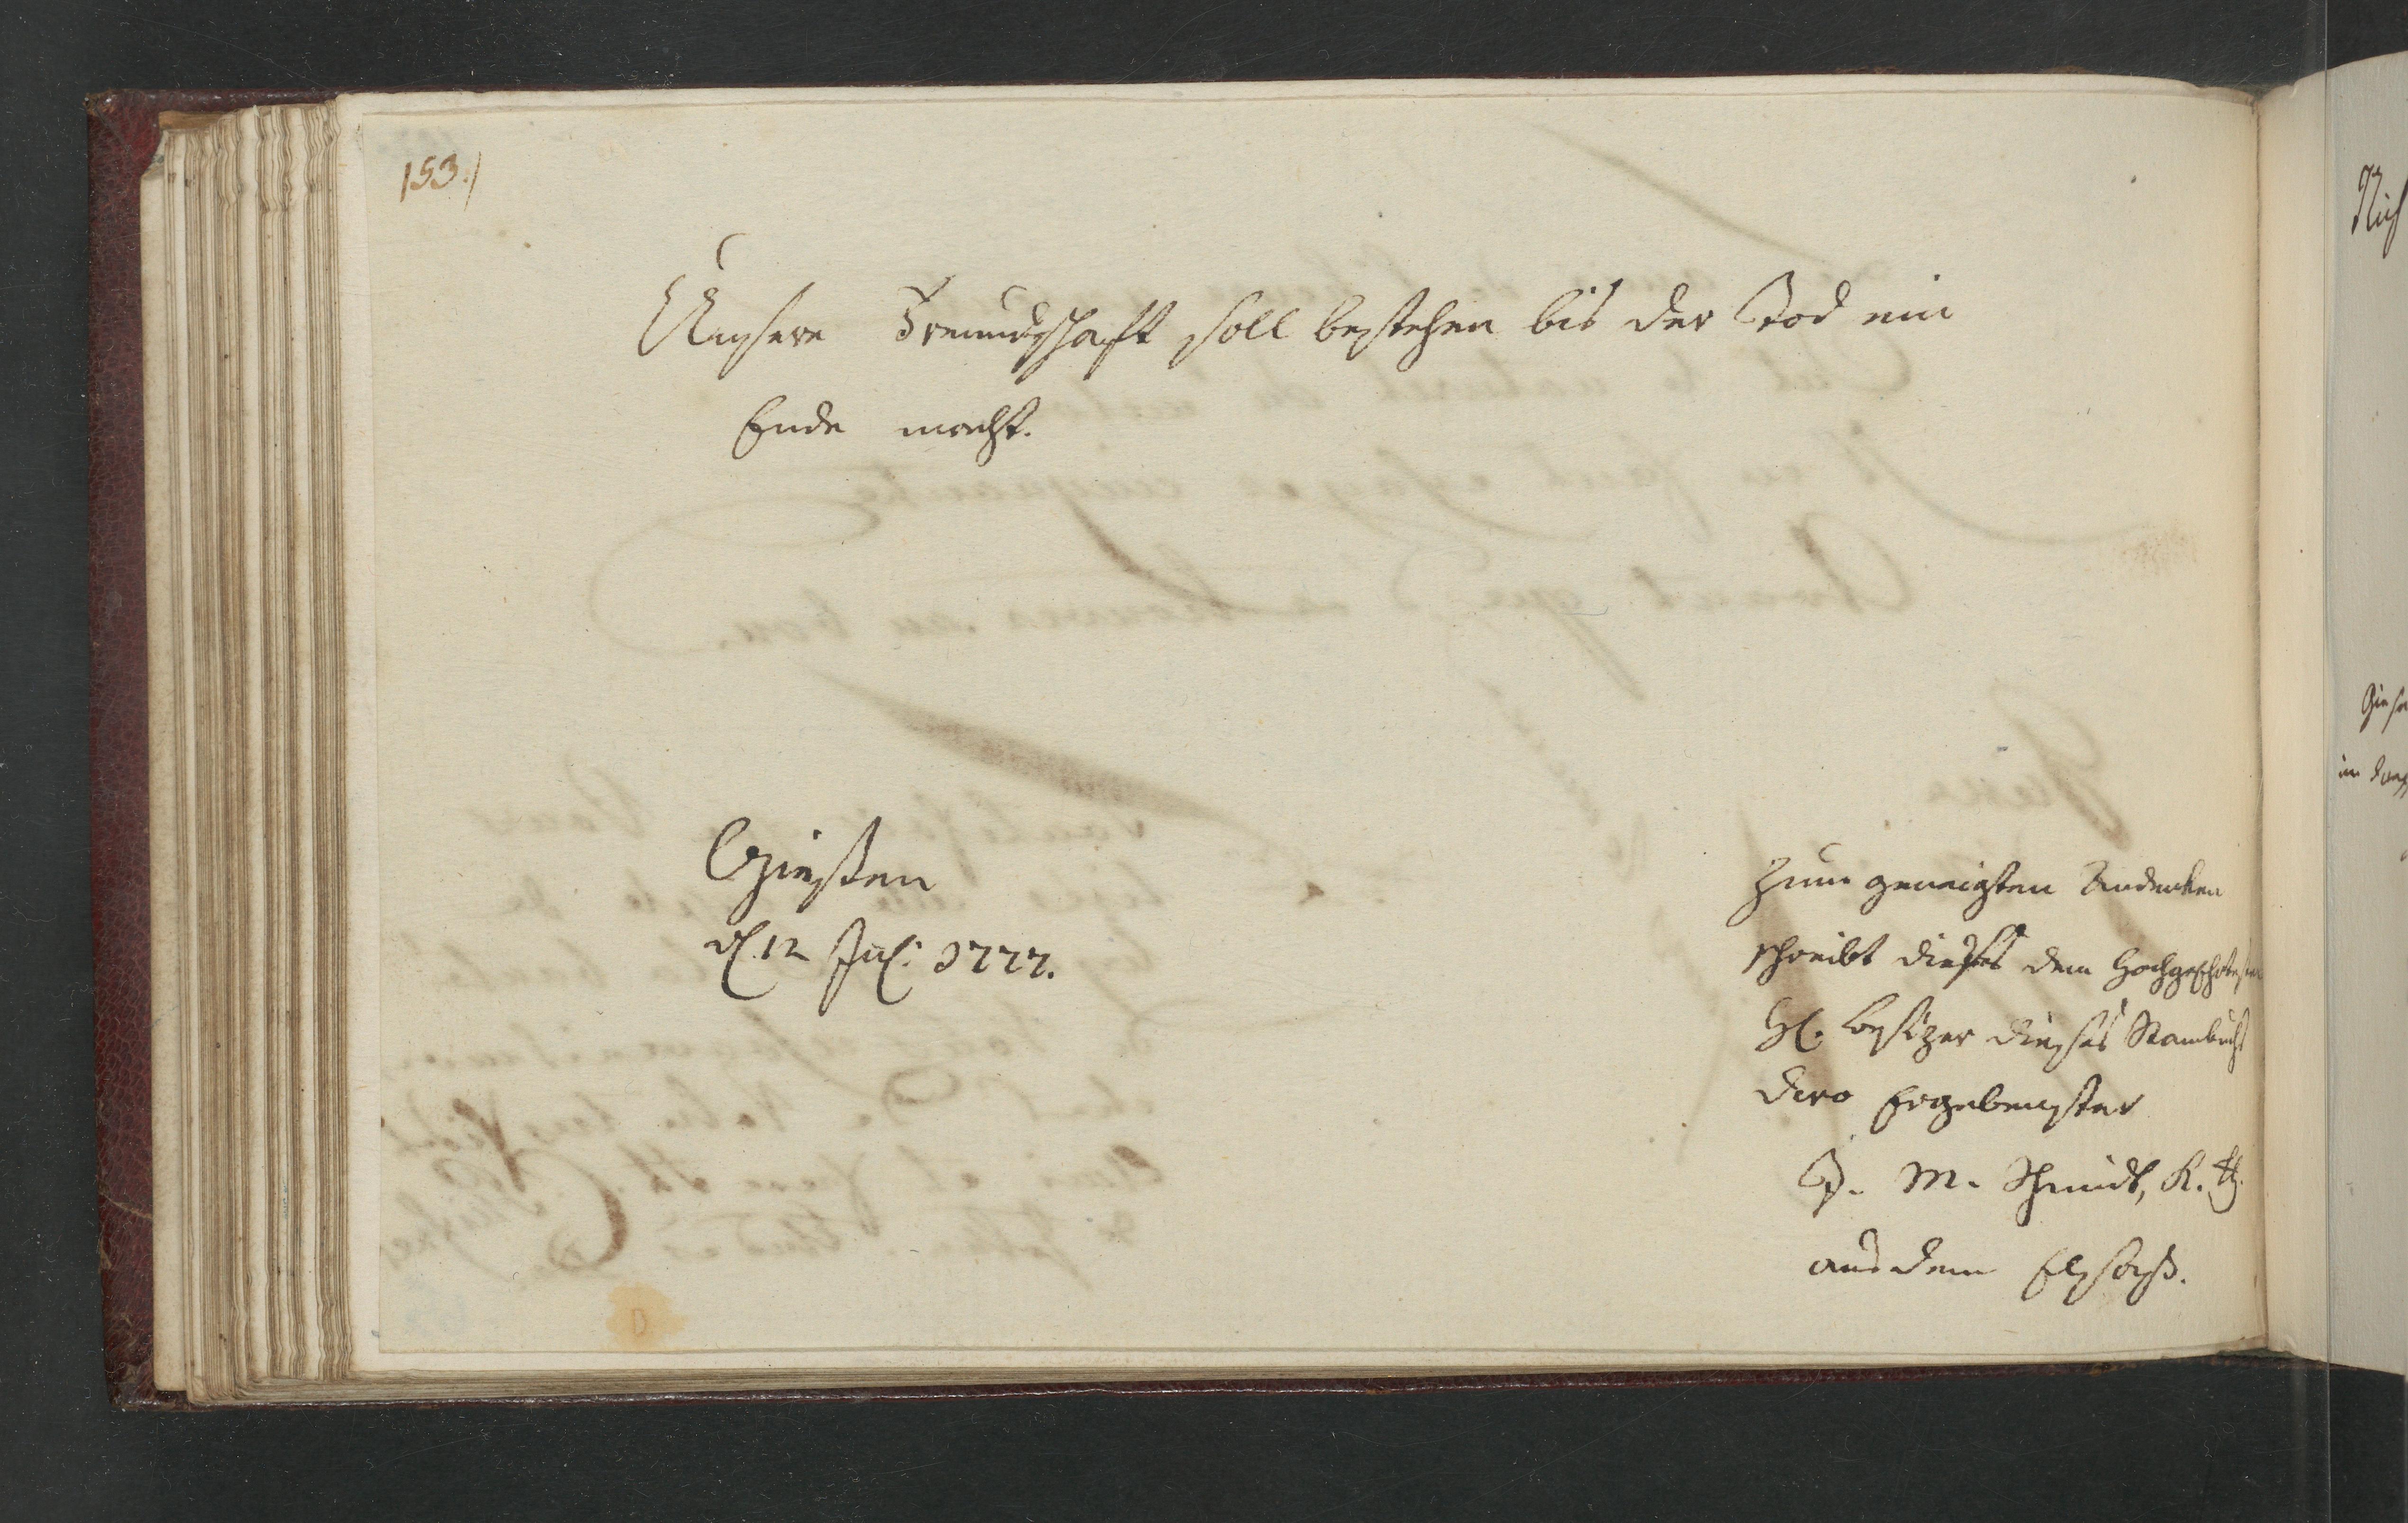 153./
Unsere Freundschaft soll bestehen bis der Tod ein
Ende macht.
Giessen
d. 12 Jul: 1777.
Zum geneigten Andencken
schreibt dieses dem Hochgeschätzten
H. besizer dieses Stambuchs
dero Ergebenster
M. Schmidt, R. th.
aus dem Elsass.